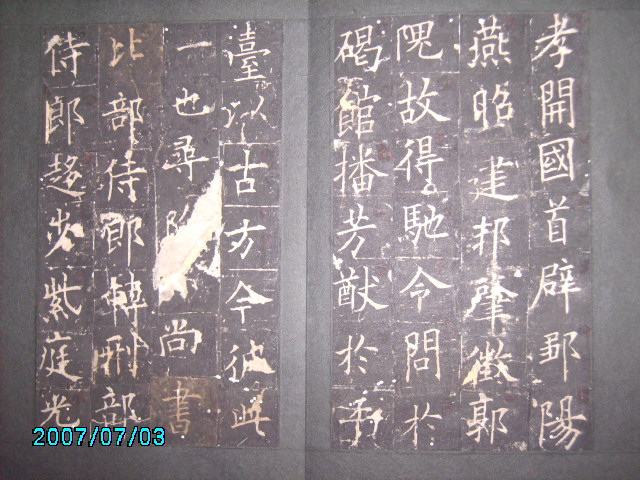 孝開國首辟鄒陽
燕昭建邦肇徵郭
隗故得馳令問於
碣館播芳猷於平
臺以古方今彼此
一也尋尚書
比部侍郎轉刑部
侍郎趍步紫庭光
2007/07/03